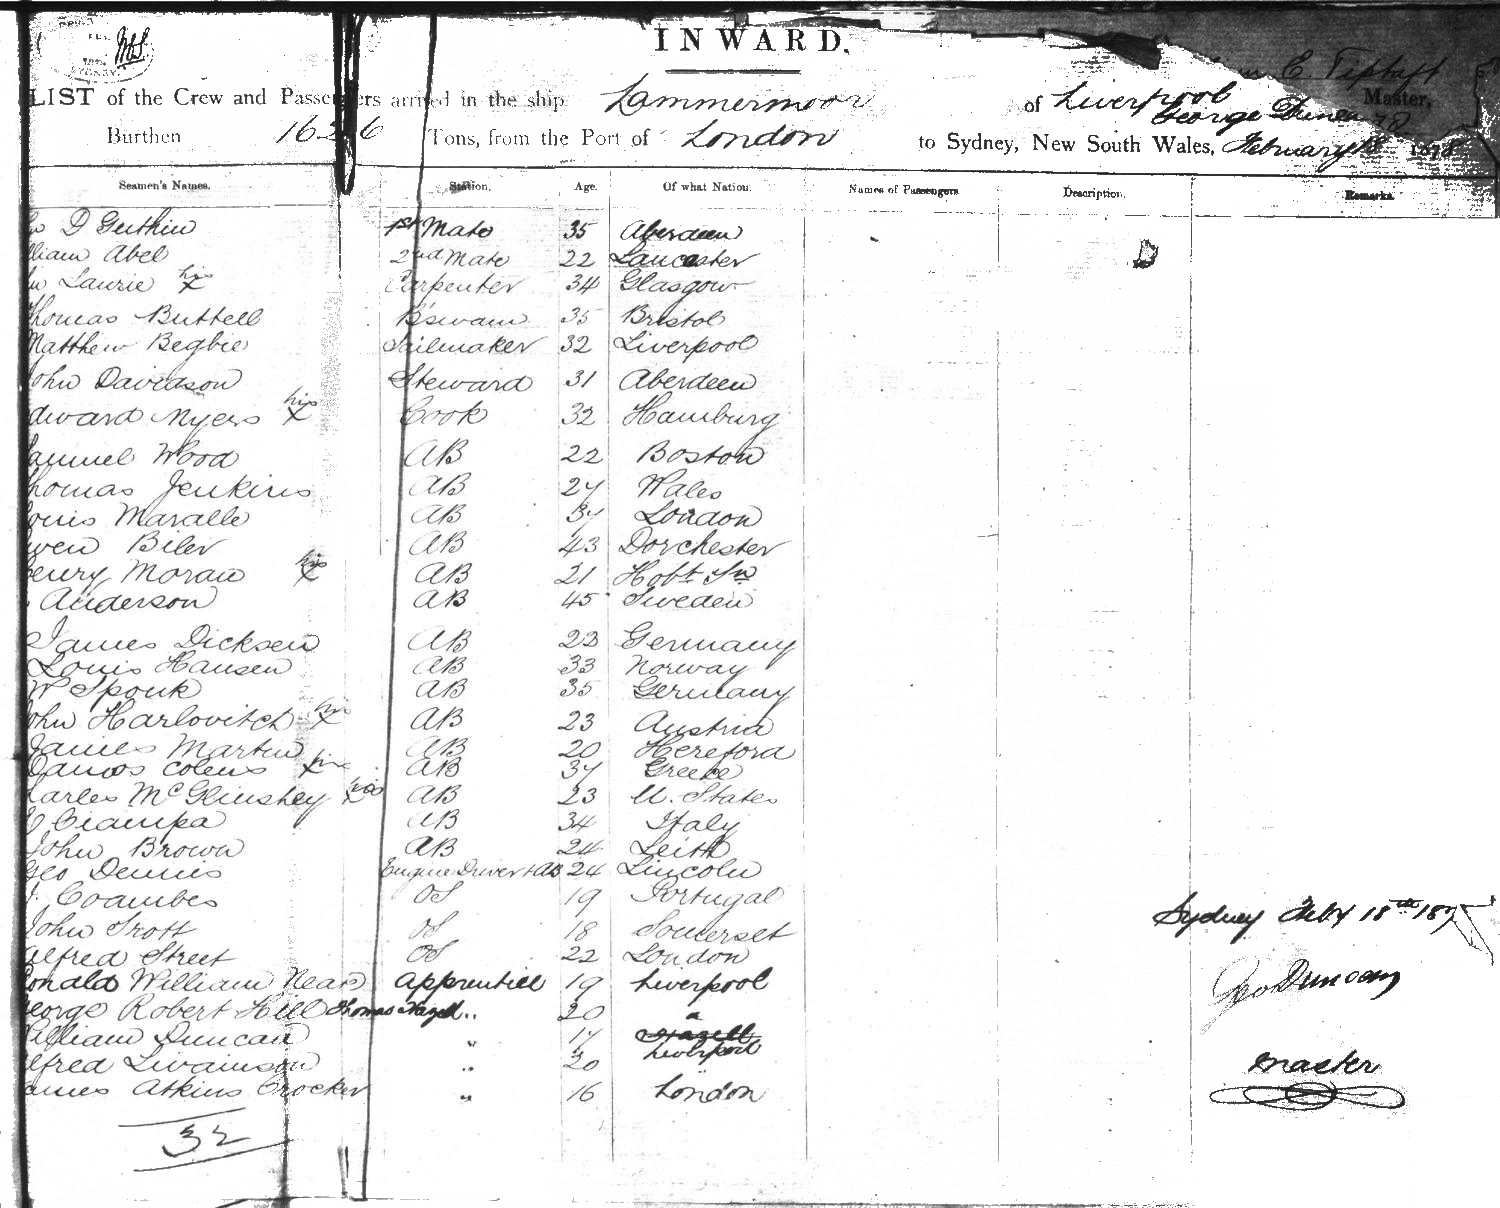 INWARD.
E. Tiptaft
LIST of the Crew and Passengers arrived in the ship Lammermoor of Liverpool George Duncan Master,
Burthen 1626 Tons, from the Port of London to Sydney, New South Wales, February 18 1878
Seamen's Names. Station. Age. Of what Nation. Names of Passengers Description. Remarks.
D Guthrie 1st Mate 35 Aberdeen
lliam Abel 2nd Mate 22 Lancaster
Laurie his x Carpenter 34 Glasgow
Thomas Buttell B'swain 35 Bristol
Matthew Begbie Sailmaker 32 Liverpool
John Davidson Steward 31 Aberdeen
dward Myers his x Cook 32 Hamburg
Samuel Wood AB 22 Boston
Thomas Jenkins AB 27 Wales
Louis Maralle AB 37 London
wen Biler AB 43 Dorchester
Henry Moran his x AB 21 Hobt Tn
Anderson AB 45 Sweden
James Dicksen AB 23 Germany
Louis Hansen AB 33 Norway
W Spouk AB 35 Germany
John Harlovitch his x AB 23 Austria
James Martin AB 20 Hereford
Colens his x AB 37 Greece
harles McGlinshey his x AB 23 U. States
Ciampa AB 34 Italy
John Brown AB 24 Leith
Geo Dennis Engine Driver + AB 24 Lincoln
Coambes OS 19 Portugal
John Trott OS 18 Somerset
Sydney Feby 18th 187
Alfred Street OS 22 London
Donald William Neas Apprentice 19 Liverpool
Geo Duncan
George Robert Hill Thomas Hazell " 20 "
William Duncan " 17 Hazell
Liverpool
Alfred Swainson " 20
Master
James Atkins Crocker " 16 London
32